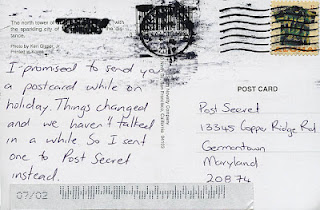 The north tower of
with
the sparkling city of
tance.
Photo by
Printed in
I promised to send you
a postcard while on
holiday. Things changed
and we haven't talked
in a while so I sent
one to Post Secret
instead.
POST CARD
Post Secret
13345 Copper Ridge Rd
Germantown
Maryland
20874
07/02